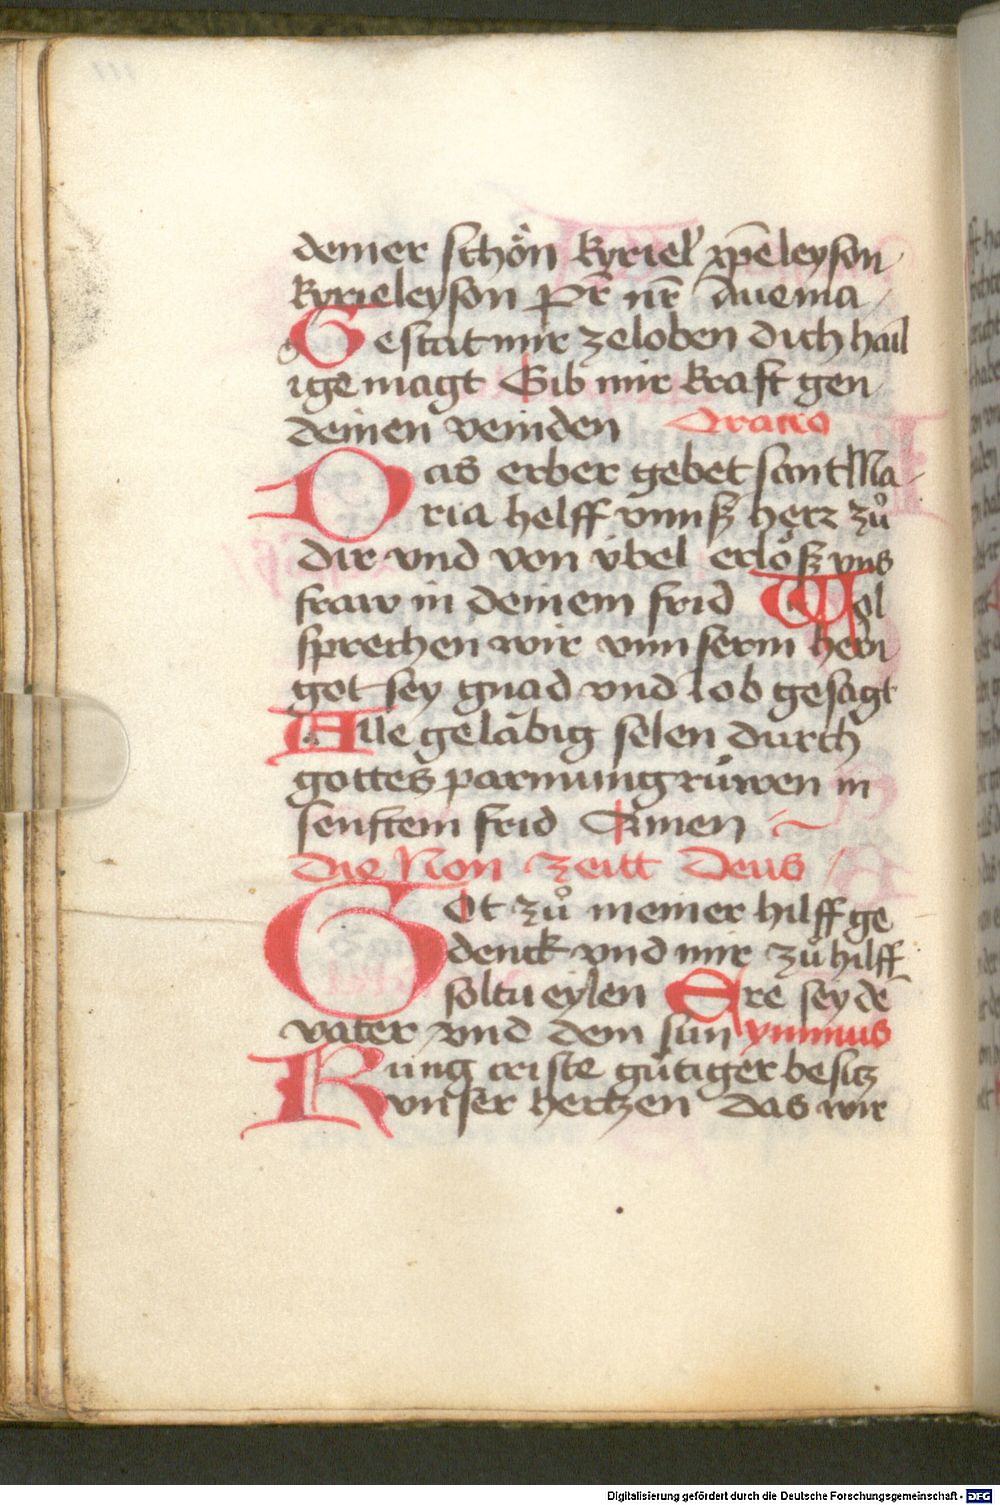 deiner schön kyriel' xp̄eleyson
kyrieleyson pr̄ nr̄ Aue ma
Gestat mir zeloben dich hail
ige magt Gib mir kraft gen
deinen veinden Oratio
Das erber gebet sant Ma
ria helff vnnß herz zů
dir vnd von v̈bel erlöß vns
fraw in deinem frid Wol
sprechen wir vnnserm hern
got sey gnad vnd lob gesagt
Alle geläbig selen durch
gottes parmung rüwen in
senftem frid Amen
Die Non zeitt Deus
Got zů meiner hilff ge
denck vnd mir zů hilff
soltu eylen Ere sey de
vater vnd dem sun ymnus
Kung criste gütiger besitz
vnser hertzen das wir
Digitalisierung gefördert durch die Deutsche Forschungsgemeinschaft - DFG